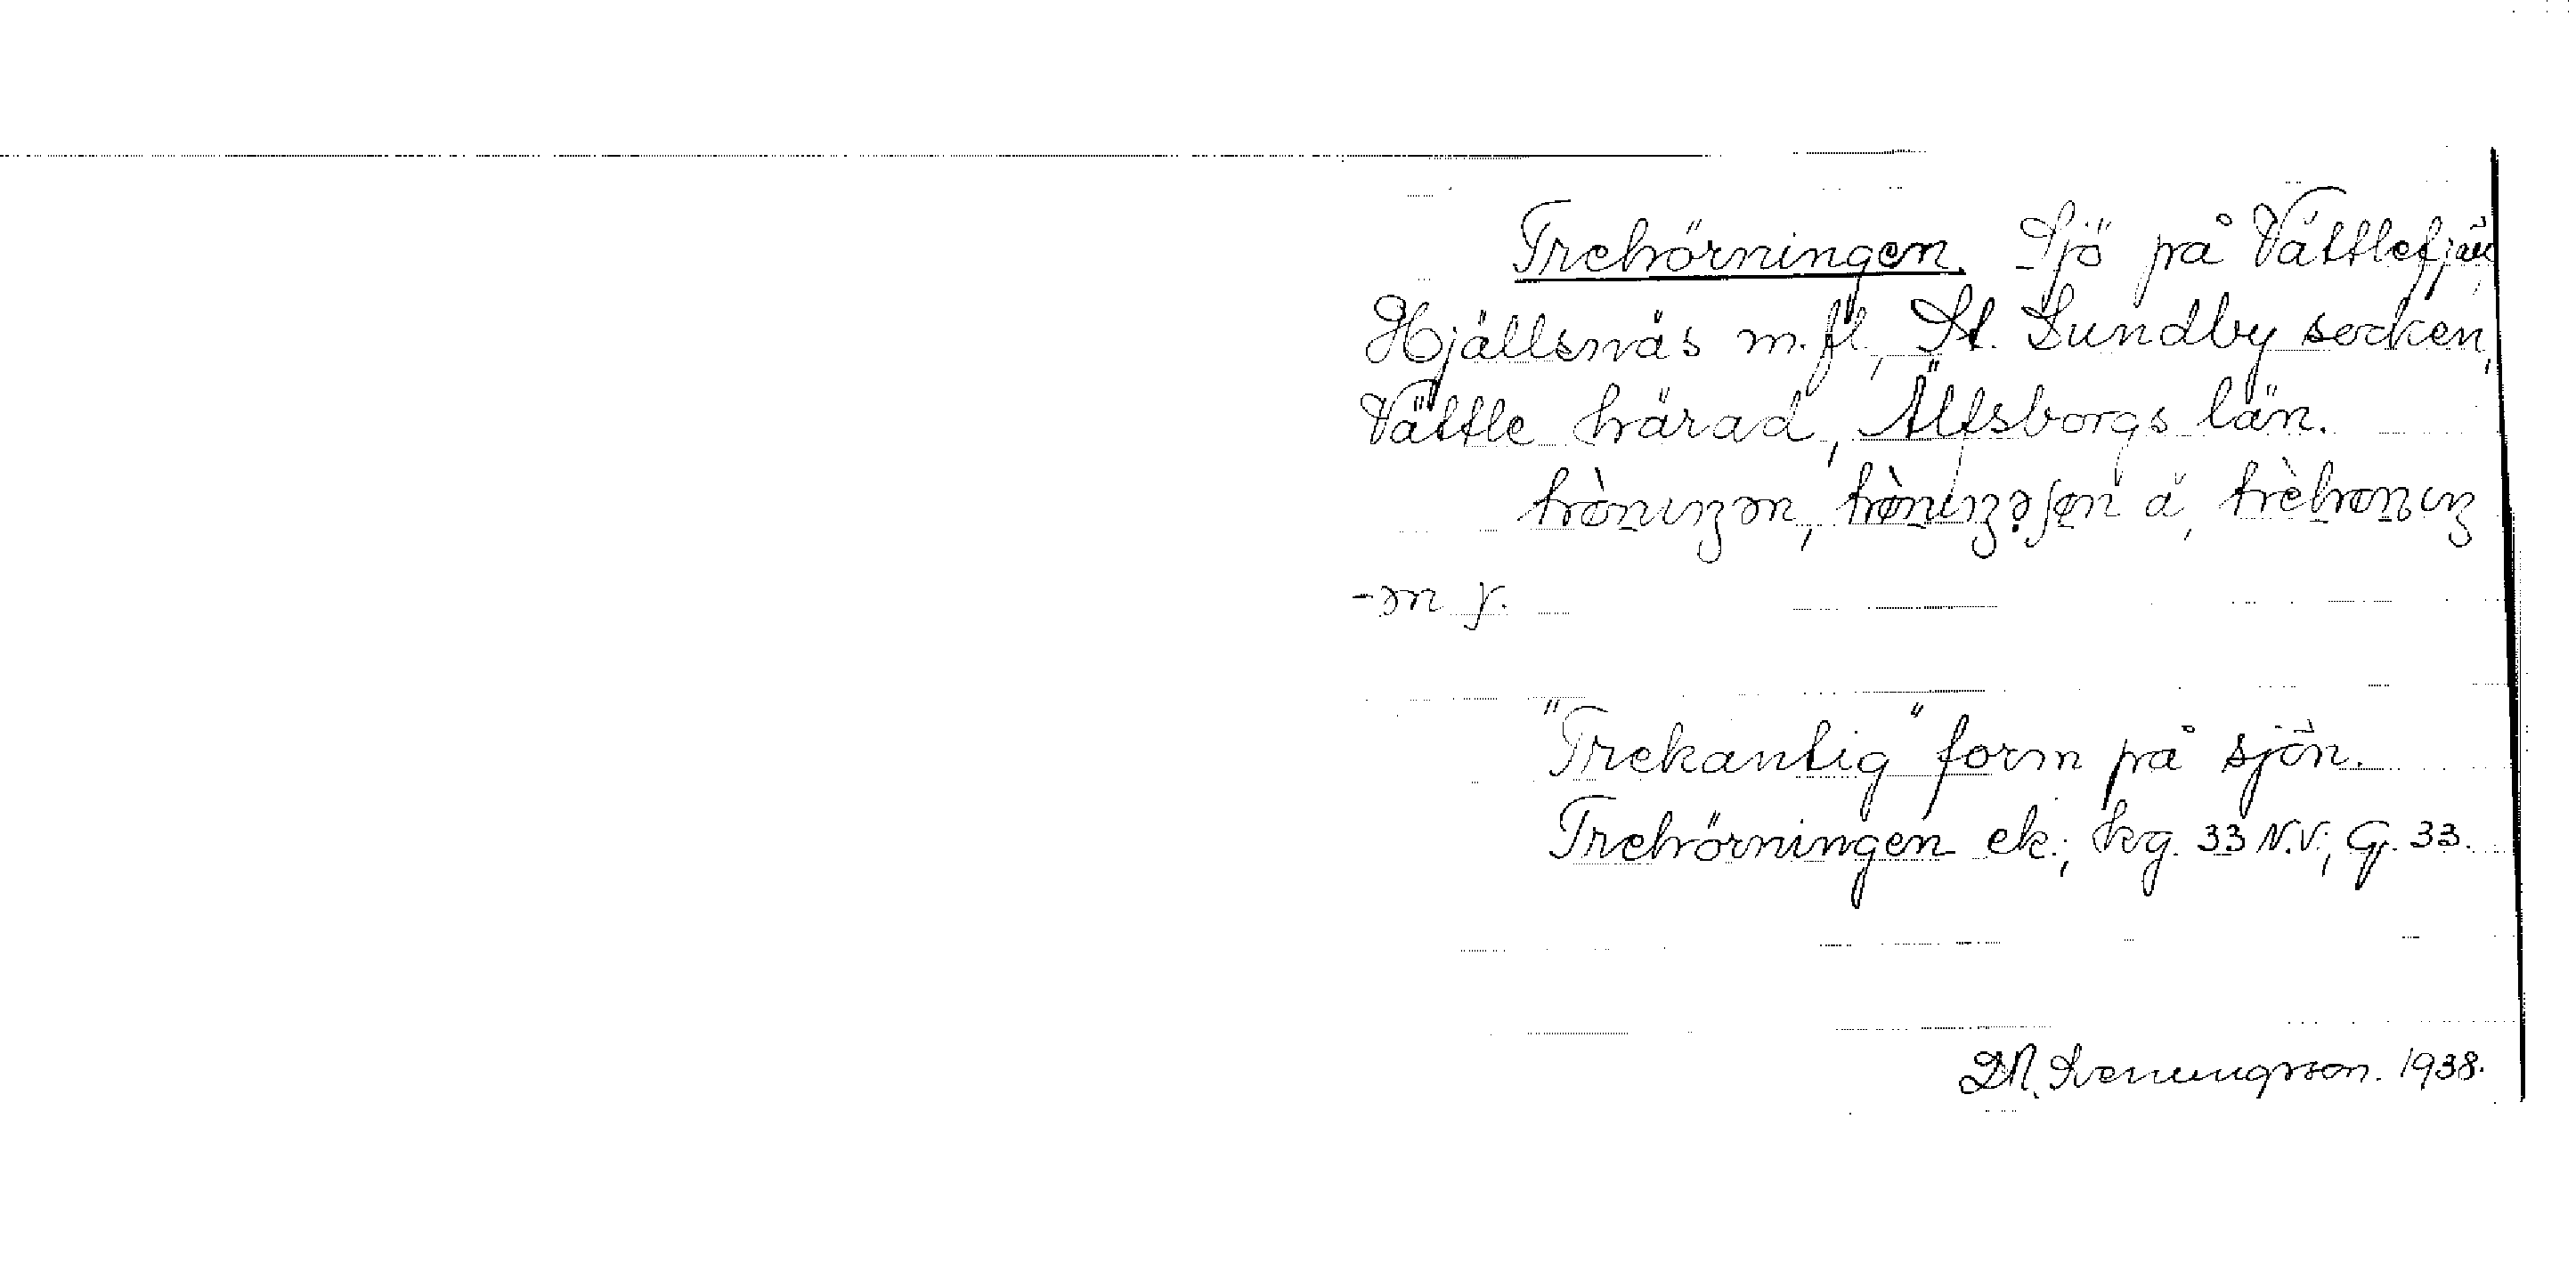 Trehörningen. Sjö på Vättlefjäll,
Hjällsnäs m.fl., St. Lundby socken,
Vättle härad, Älfsborgs län.
trö̀nıŋən, trö̀nıŋəʃøn ä, trèhönıŋ
-ən y.
"Trekantig" form på sjön.
Trehörningen ek.; kg. 33 N.V.; G. 33.
D.N. Svenungsson. 1938.